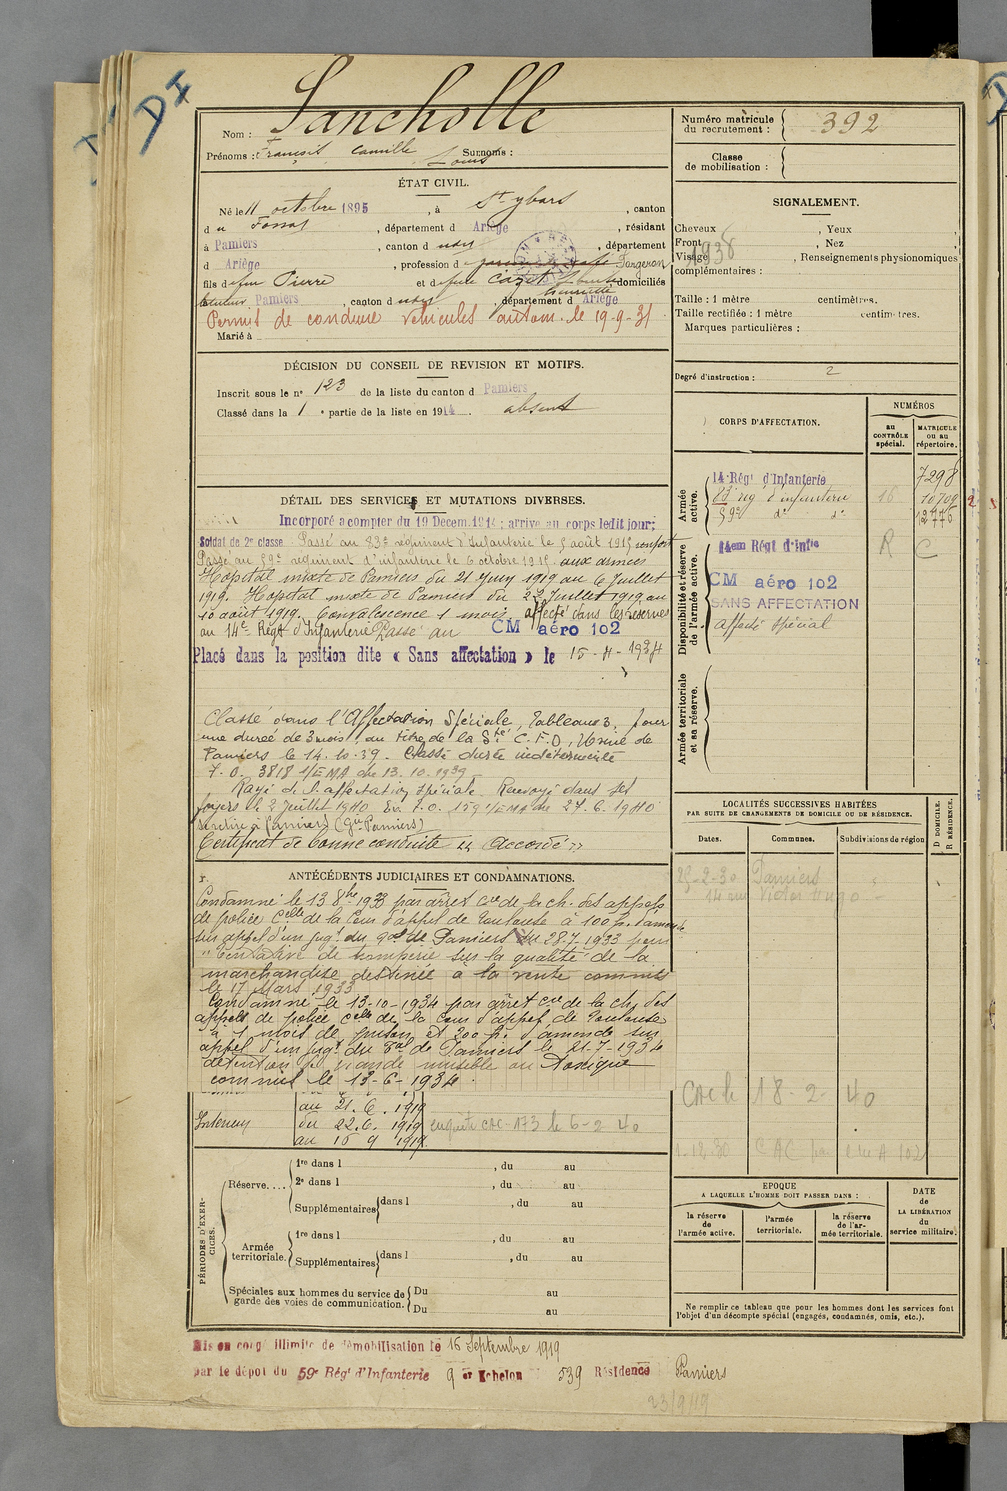 DI
Nom : Sancholle
Prénoms : François Camille Louis Surnoms :
Numéro matricule du recrutement : 392
Classe de mobilisation :
ÉTAT CIVIL.
Né le 11 octobre 1895, à St-ybars, canton
du Fossat, département d Ariège, résidant
à Pamiers, canton d udit, département
d Ariège, profession de Forgeron
fils de feu Pierre et de feue domiciliés
tuteur Pamiers, canton d udit, département d Ariège
Permis de conduire véhicules autom. le 19-9-31
Marié à
SIGNALEMENT.
Cheveux , Yeux
Front , Nez
Visage , Renseignements physionomiques
complémentaires :
1938
Taille : 1 mètre centimètres.
Taille rectifiée : 1 mètre centimètres.
Marques particulières :
Degré d'instruction : 2
DÉCISION DU CONSEIL DE REVISION ET MOTIFS.
Inscrit sous le n° 123 de la liste du canton d Pamiers
Classé dans la 1e partie de la liste en 1914. absent
DÉTAIL DES SERVICES ET MUTATIONS DIVERSES.
Incorporé à compter du 19 Décem. 1914 ; arrivé au corps ledit jour ;
Soldat de 2e classe. Passé au 83e régiment d'Infanterie le 5 août 1915 renfort
Passé au 59e régiment d'infanterie le 6 octobre 1915. aux armées
Hôpital mixte de Pamiers du 21 Juin 1919 au 6 Juillet
1919. Hôpital mixte de Pamiers du 22 Juillet 1919 au
10 août 1919. Convalescence 1 mois. affecté dans les réserves
au 14e Régt d'Infanterie Passé au CM aéro 102
Placé dans la position dite « Sans affectation » le 15-4-1934
Classé dans l'Affectation Spéciale, Tableau 3, pour
une durée de 3 mois, au titre de la Sté C.F.D, Usine de
Pamiers le 14.10.39. Classé durée indéterminée
T.O. 3818 1/EMA du 13.10.1939
Rayé de l'affectation spéciale. Renvoyé dans ses
foyers le 2 Juillet 1940 En. T.O. 159 1/EMA du 27.6.1940
se retire à Pamiers (gu Pamiers)
Certificat de bonne conduite « Accordé »
CORPS D'AFFECTATION.
NUMÉROS
au CONTRÔLE spécial.
MATRICULE ou au répertoire.
Armée active.
14 Régt d'Infanterie 7298
83e rég d'infanterie 16 10709
59e do do 12776
Disponibilité et réserve de l'armée active.
14em Régt d'Infie R C
CM aéro 102
SANS AFFECTATION
affecté spécial
Armée territoriale et sa réserve.
LOCALITÉS SUCCESSIVES HABITÉES
PAR SUITE DE CHANGEMENTS DE DOMICILE OU DE RÉSIDENCE.
D DOMICILE.
R RÉSIDENCE.
Dates. Communes. Subdivisions de région
25-2-30 Pamiers
14 av Victor Hugo
CAC le 18-2-40
ANTÉCÉDENTS JUDICIAIRES ET CONDAMNATIONS.
Condamné le 13 8bre 1933 par arrêt cre de la ch. des appels
de police Celle de la Cour d'appel de Toulouse à 100 f. d'amende
sur appel d'un jugt du gal de Pamiers du 28.7.1933 pour
" tentative de tromperie sur la qualité de la
marchandise destinée à la vente commis
le 17 Mars 1933
Condamné le 13-10-1934 par arrêt cre de la ch. des
appels de police Celle de la Cour d'appel de Toulouse
à 1 mois de prison et 200 f. d'amende sur
appel d'un jugt du Tal de Pamiers le 21-7-1934
détention de viande nuisible ou toxique
commis le 13-6-1934.
au 21.6.1919
Intérieur du 22.6.1919
au 15 9 1919. enquête CAC-173 le 6-2 40
PÉRIODES D'EXERCICES.
Réserve....
1re dans l , du au
2e dans l , du au
Supplémentaires dans l , du au
Armée territoriale.
1re dans l , du au
Supplémentaires dans l , du au
Spéciales aux hommes du service de garde des voies de communication.
Du au
Du au
EPOQUE
A LAQUELLE L'HOMME DOIT PASSER DANS :
la réserve de l'armée active.
l'armée territoriale.
la réserve de l'armée territoriale.
DATE de LA LIBÉRATION du service militaire.
Ne remplir ce tableau que pour les hommes dont les services font
l'objet d'un décompte spécial (engagés, condamnés, omis, etc.).
Mis en congé illimité de démobilisation le 16 Septembre 1919
par le dépôt du 59e Régt d'Infanterie 9e Echelon 539 Résidence Pamiers
23/9/19